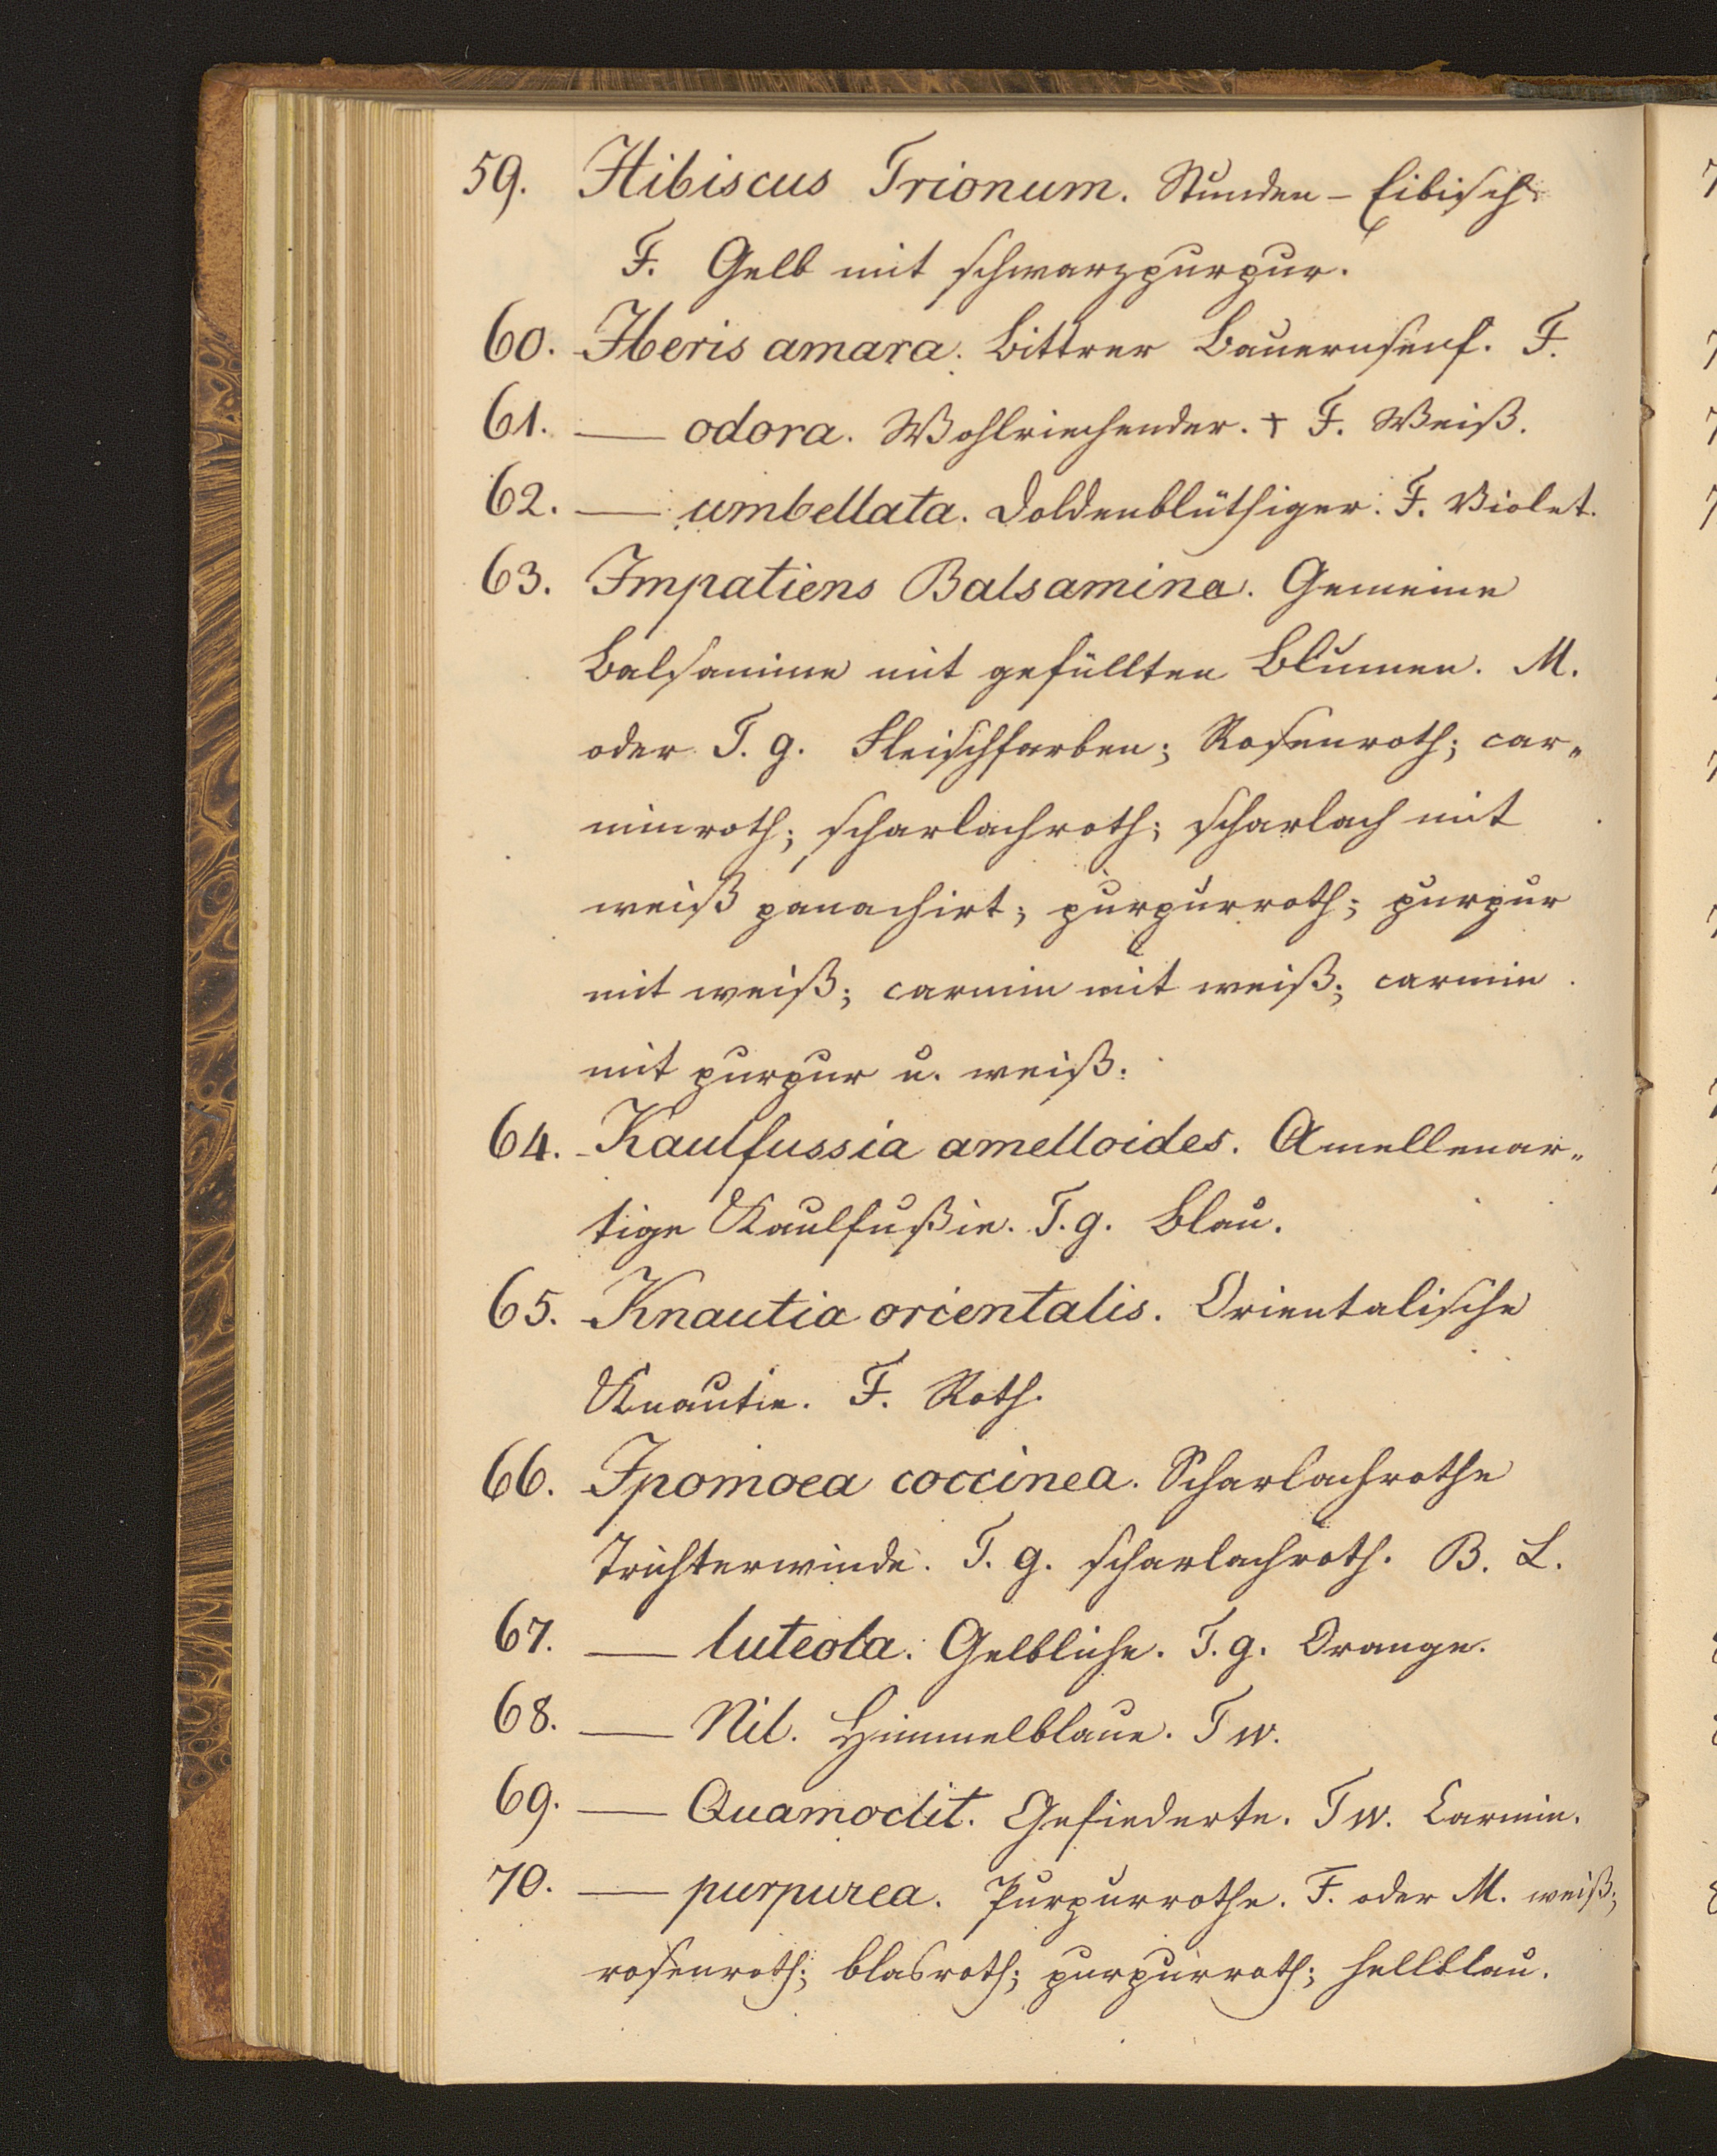 59. Hibiscus Trionum. Stunden-Eibisch.
F. Gelb mit schwarzpurpur.
60. Iberis amara. Bittrer Bauernsenf. F.
61. — odora. Wohlriechender. + F. Weiß.
62. — umbellata. Doldenblüthiger. F. Violet.
63. Impatiens Balsamina. Gemeine
Balsamine mit gefüllten Blumen. M.
oder T. g. Fleischfarben; Rosenroth; car„
minroth; scharlachroth; scharlach mit
weiß panachirt; purpurroth; purpur
mit weiß; carmin mit weiß; carmin
mit purpur u. weiß.
64. Kaulfussia amelloides. Amellenar„
tige Kaulfußie. T. g. Blau.
65. Knautia orientalis. Orientalische
Knautie. F. Roth.
66. Ipomoea coccinea. Scharlachrothe
Trichterwinde. T. g. scharlachroth. B. L.
67. — luteola. Gelbliche. T. g. Orange.
68. — Nil. Himmelblaue. T w.
69. — Quamoclit. Gefiederte. T w. Carmin.
70. — purpurea. Purpurrothe. F. oder M. weiß;
rosenroth; blasroth; purpurroth; hellblau.